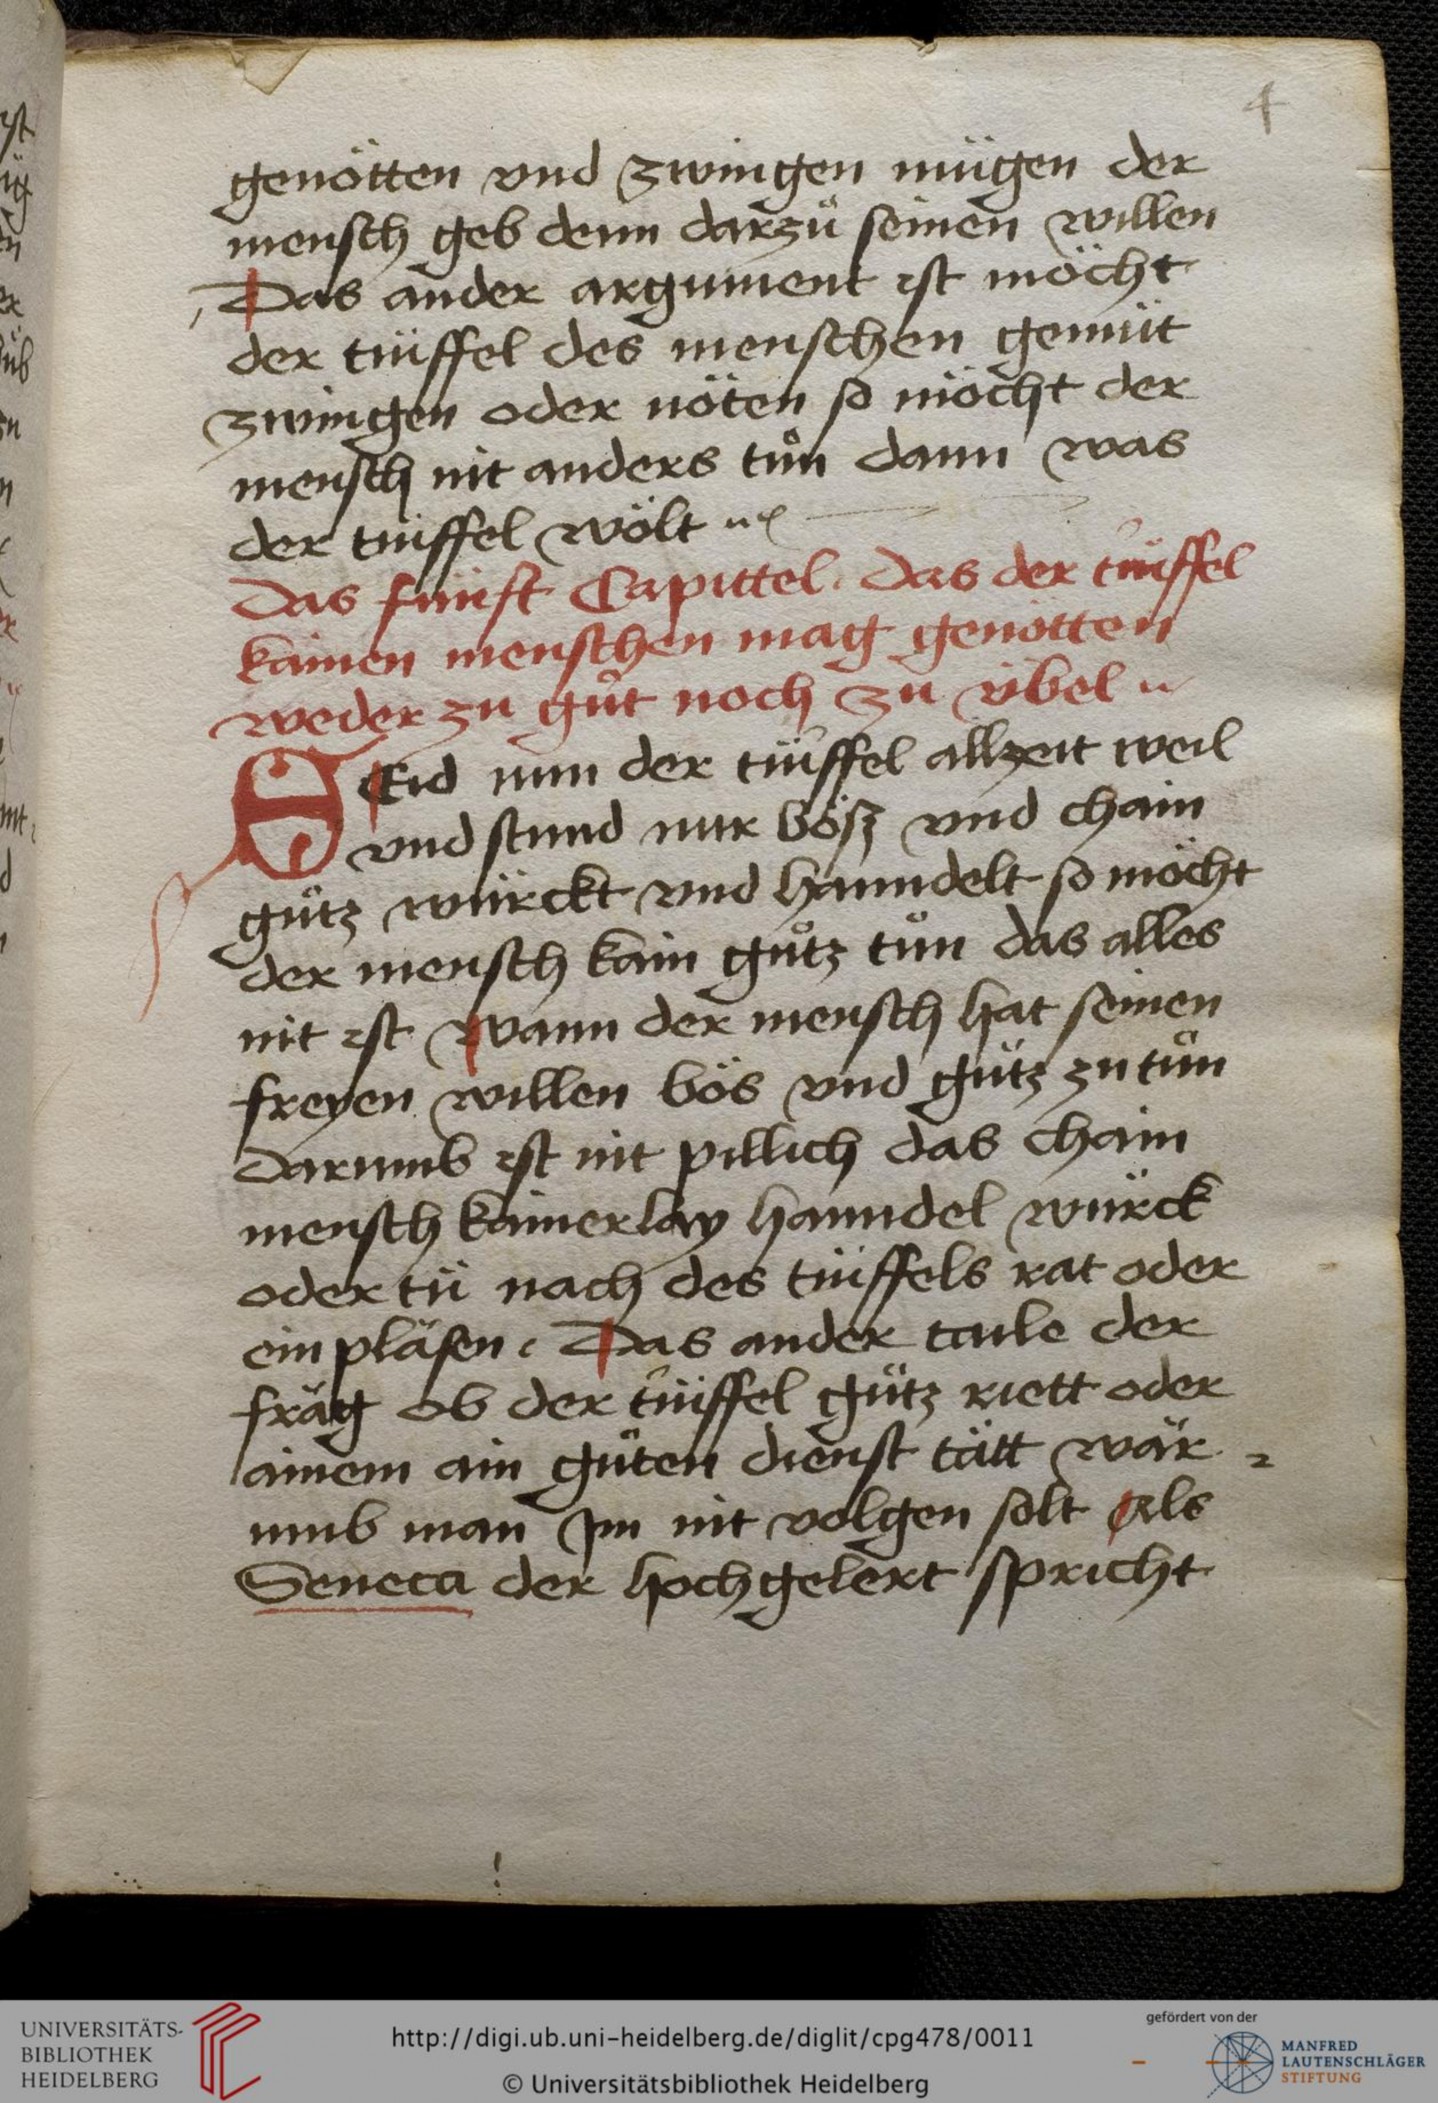 4
genötten vnd zwingen mügen der
mensch geb denn darzů seinen willen
Das ander argument ist möcht
der tüffel des menschen gemüt
zwingen oder nöten so möcht der
mensch nit anders tůn dann was
der tüffel wölt
Das fünft Capittel. Das der tüffel
kainen menschen mag genötten
weder zu gůt noch zu übel
SEid nun der tüffel allzeit weil
vnd stund nur bösz vnd chain
gůtz würckt vnd hanndelt so möcht
der mensch kain gůtz tůn das alles
nit ist wann der mensch hat seinen
freyen willen bös vnd gůtz zu tůn
darumb ist nit pillich das chain
mensch kainerlay hanndel würck
oder tü nach des tüffels rat oder
ein pläsen. Das ander taile der
fräg ob der tüffel gůtz riett oder
ainem ain gůten dienst tätt wär
umb man Im nit volgen solt Als
Seneca der hochgelert spricht
UNIVERSITÄTS-
BIBLIOTHEK
HEIDELBERG
http://digi.ub.uni-heidelberg.de/diglit/cpg478/0011
© Universitätsbibliothek Heidelberg
gefördert von der
MANFRED
LAUTENSCHLÄGER
STIFTUNG